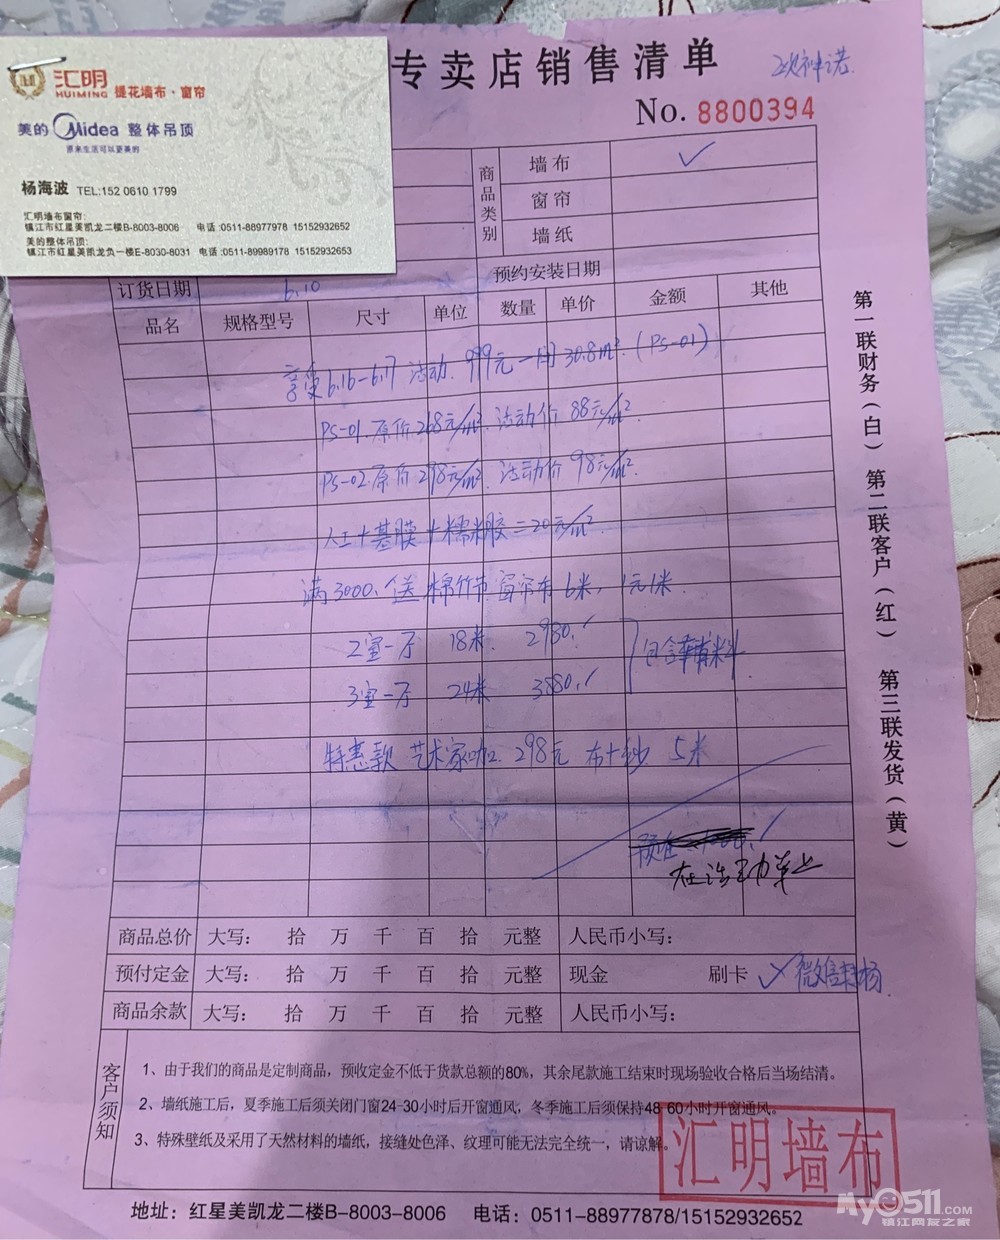 专卖店销售清单
No. 8800394
汇明
HUIMING 提花墙布·窗帘
美的 Midea 整体吊顶
原来生活可以更美的
杨海波 TEL:152 0610 1799
汇明墙布窗帘:
镇江市红星美凯龙二楼B-8003-8006 电话:0511-88977978 15152932652
美的整体吊顶:
镇江市红星美凯龙负一楼E-8030-8031 电话:0511-89989178 15152932653
商品类别 墙布 ✓
窗帘
墙纸
订货日期 6.10 预约安装日期
品名 规格型号 尺寸 单位 数量 单价 金额 其他
享受6.16-6.17活动.999元一间30.8m².(PS-01)
PS-01.原价268元/m².活动价88元/m².
PS-02.原价298元/m².活动价98元/m².
人工+基膜+糯米胶=20元/m².
满3000.送棉竹节窗帘布6米,1元1米.
2室一厅 18米. 2980.✓
3室一厅 24米 3880.✓
包含辅料
特惠款 艺术家咖. 298元 布+纱 5米
在活动单上
商品总价 大写: 拾 万 千 百 拾 元整 人民币小写:
预付定金 大写: 拾 万 千 百 拾 元整 现金 刷卡 ✓微信转杨
商品余款 大写: 拾 万 千 百 拾 元整 人民币小写:
客户须知
1、由于我们的商品是定制商品，预收定金不低于货款总额的80%，其余尾款施工结束时现场验收合格后当场结清。
2、墙纸施工后，夏季施工后须关闭门窗24-30小时后开窗通风，冬季施工后须保持48-60小时开窗通风。
3、特殊壁纸及采用了天然材料的墙纸，接缝处色泽、纹理可能无法完全统一，请谅解。
汇明墙布
地址：红星美凯龙二楼B-8003-8006 电话：0511-88977878/15152932652
第一联财务(白) 第二联客户(红) 第三联发货(黄)
My0511.COM
镇江网友之家